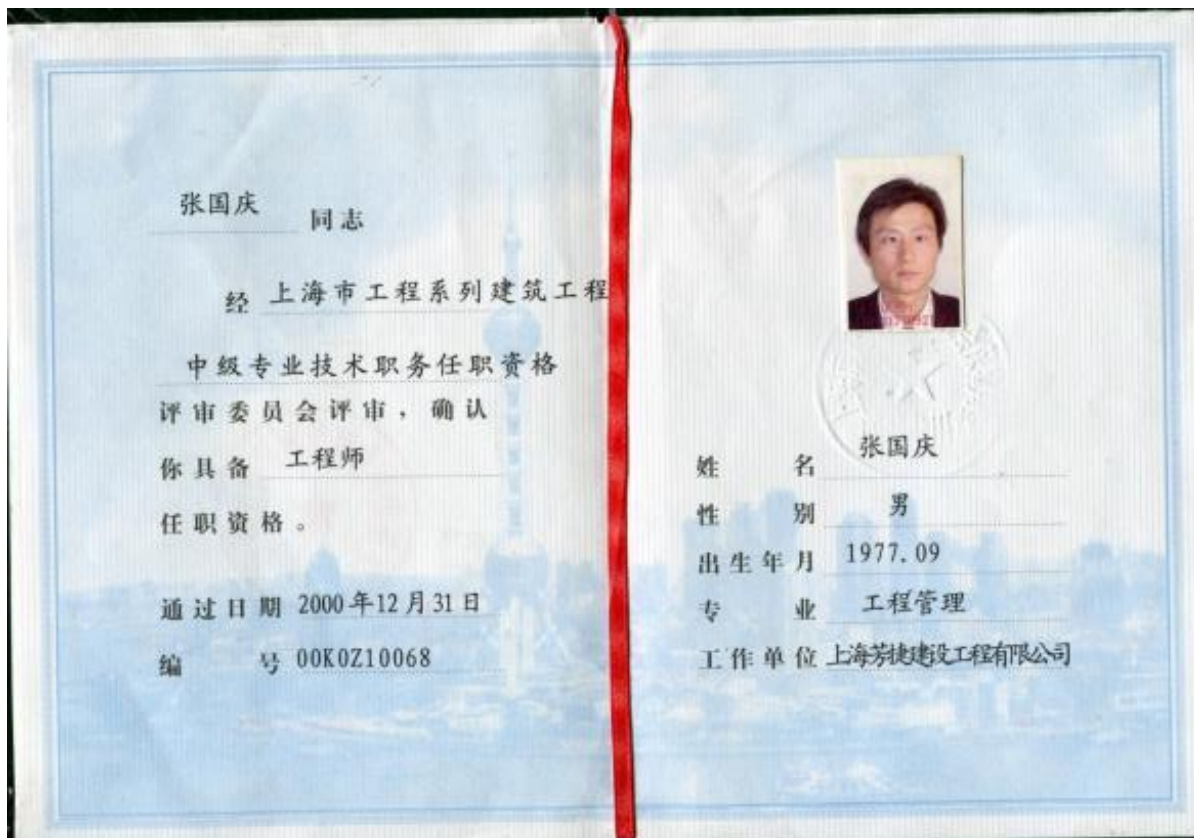 张国庆 同志
经 上海市工程系列建筑工程
中级专业技术职务任职资格
评审委员会评审，确认
你具备 工程师
任职资格。
通过日期 2000年12月31日
编号 00K0Z10068
姓名 张国庆
性别 男
出生年月 1977.09
专业 工程管理
工作单位 上海芳捷建设工程有限公司